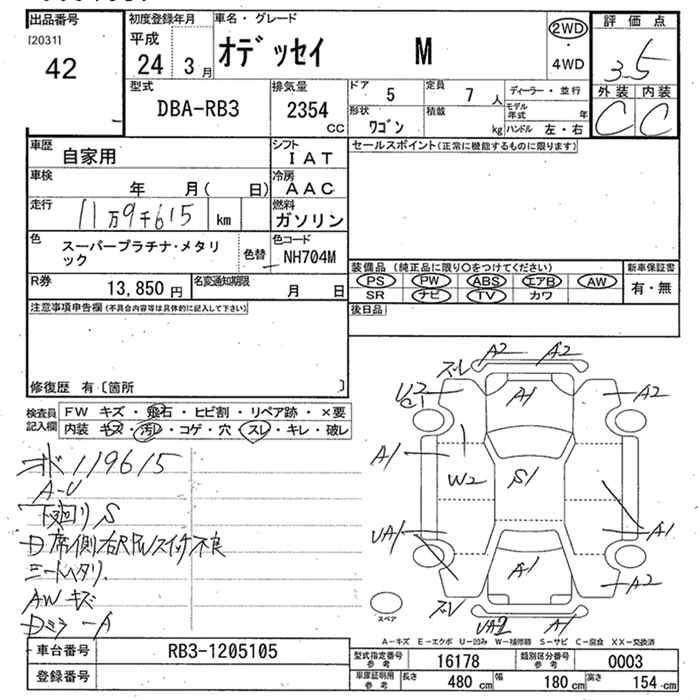 出品番号
[20311]
42
初度登録年月
平成
24 3 月
車名・グレード
オデッセイ M
2WD
・
4WD
評価点
3.5
外装 内装
C C
型式
DBA-RB3
排気量
2354
CC
ドア 5
定員 7 人
形状 ワゴン
積載 kg
ディーラー・並行
モデル年式 年
ハンドル 左・右
車歴
自家用
シフト
IAT
車検 年 月( 日)
冷房
AAC
走行 11万9千615 km
燃料
ガソリン
色
スーパープラチナ・メタリ
ック
色替
色コード
NH704M
R券 13,850 円
名変通知期限 月 日
セールスポイント(正常に機能するものに限ります)
装備品 (純正品に限り○をつけてください)
PS PW ABS エアB AW
SR ナビ TV カワ
新車保証書
有・無
後日品
注意事項申告欄(不具合内容等は具体的に記入して下さい)
修復歴 有〔箇所 〕
検査員
記入欄
FW キズ・飛石・ヒビ割・リペア跡・×要
内装 キズ・汚レ・コゲ・穴・スレ・キレ・破レ
119615
A-U
下廻り S
D席側右RPWスイッチ不良
シートヘタリ
AWキズ
Dミラー A
ズレ
A2 A2
A1
A2
A1
W2
S1
UA1
A1
A1
A2
ズレ
UA2 A1
スペア
A-キズ E-エクボ U-凹み W-補修跡 S-サビ C-腐食 XX-交換済
車台番号 RB3-1205105
登録番号
型式指定番号
参考
16178
類別区分番号
参考
0003
車庫証明用
参考
長さ 480 cm
幅 180 cm
高さ 154 cm